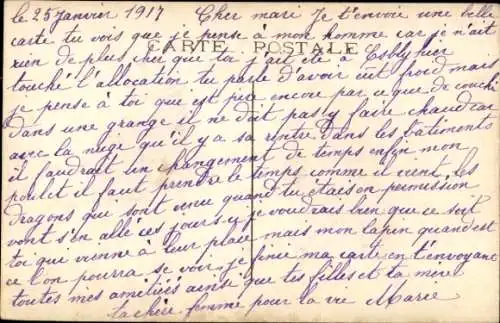 le 25 janvier 1917 Cher mari Je t'envoie une belle
carte tu vois que je pense à mon homme car je n'ait
CARTE POSTALE
rien de plus cher que toi j'ait été à Esbly hier
touché l'allocation tu parle d'avoir eut froid mais
je pense à toi que est pire encore par ce que de couché
dans une grange il ne doit pas y faire chaud car
avec la neige qu'il y a sa rentre dans les batiments
il faudrait un changement de temps enfin mon
poulet il faut prendre le temps comme il vient les
dragons qui sont venu quand tu étais en permission
vont s'en allé ces jours y je voudrais bien que ce soit
toi que vienne à leur place mais mon lapin quand est
ce l'on pourra se voir je finie ma carte en t'envoyant
toutes mes amitiés ainsi que tes filles et ta mère
ta chère femme pour la vie Marie